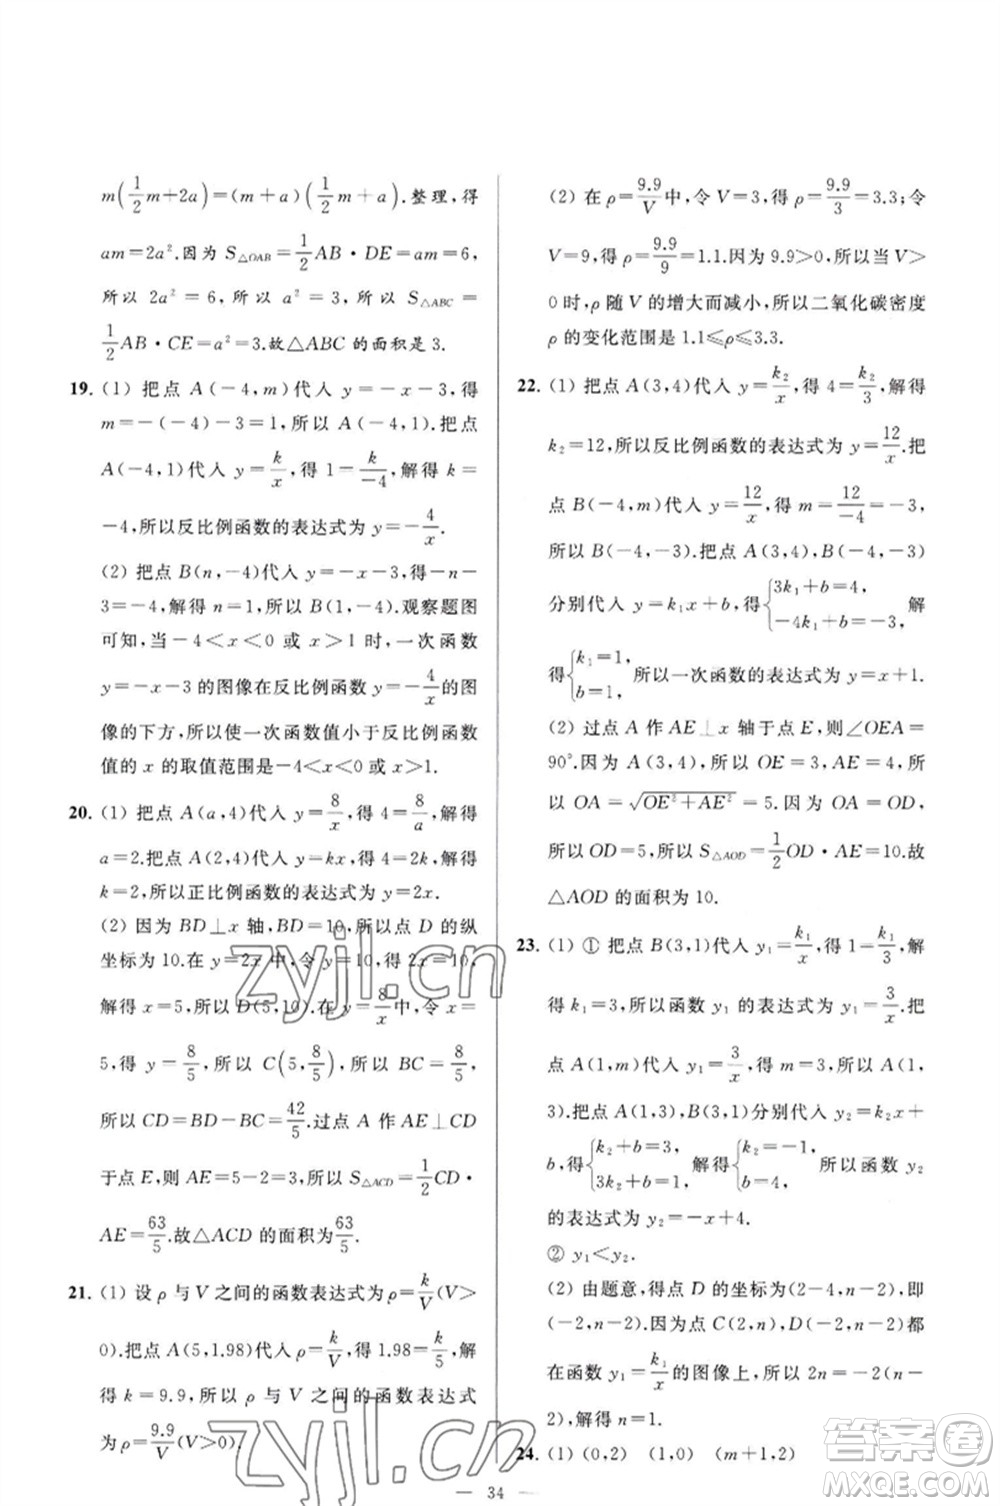 m(1/2m+2a)=(m+a)(1/2m+a).整理,得
am=2a².因为 S△OAB=1/2AB·DE=am=6,
所以 2a²=6,所以 a²=3,所以 S△ABC=
1/2AB·CE=a²=3.故△ABC 的面积是 3.
19. (1) 把点 A(-4,m)代入 y=-x-3,得
m=-(-4)-3=1,所以 A(-4,1).把点
A(-4,1)代入 y=k/x,得 1=k/-4,解得 k=
-4,所以反比例函数的表达式为 y=-4/x.
(2) 把点 B(n,-4)代入 y=-x-3,得-n-
3=-4,解得 n=1,所以 B(1,-4).观察题图
可知,当-4<x<0 或 x>1 时,一次函数
y=-x-3 的图像在反比例函数 y=-4/x的图
像的下方,所以使一次函数值小于反比例函数
值的 x 的取值范围是-4<x<0 或 x>1.
20. (1) 把点 A(a,4)代入 y=8/x,得 4=8/a,解得
a=2.把点 A(2,4)代入 y=kx,得 4=2k,解得
k=2,所以正比例函数的表达式为 y=2x.
(2) 因为 BD⊥x 轴,BD=10,所以点 D 的纵
坐标为 10.在 y=2x 中,令 y=10,得 2x=10,
解得 x=5,所以 D(5,10).在 y=8/x中,令 x=
5,得 y=8/5,所以 C(5,8/5),所以 BC=8/5,
所以 CD=BD-BC=42/5.过点 A 作 AE⊥CD
于点 E,则 AE=5-2=3,所以 S△ACD=1/2CD·
AE=63/5.故△ACD 的面积为63/5.
21. (1) 设 ρ 与 V 之间的函数表达式为 ρ=k/V(V>
0).把点 A(5,1.98)代入 ρ=k/V,得 1.98=k/5,解
得 k=9.9,所以 ρ 与 V 之间的函数表达式
为 ρ=9.9/V(V>0).
(2) 在 ρ=9.9/V中,令 V=3,得 ρ=9.9/3=3.3;令
V=9,得 ρ=9.9/9=1.1.因为 9.9>0,所以当 V>
0时,ρ 随 V 的增大而减小,所以二氧化碳密度
ρ 的变化范围是 1.1≤ρ≤3.3.
22. (1) 把点 A(3,4)代入 y=k₂/x,得 4=k₂/3,解得
k₂=12,所以反比例函数的表达式为 y=12/x.把
点 B(-4,m)代入 y=12/x,得 m=12/-4=-3,
所以 B(-4,-3).把点 A(3,4),B(-4,-3)
分别代入 y=k₁x+b,得{3k₁+b=4, -4k₁+b=-3, 解
得{k₁=1, b=1, 所以一次函数的表达式为 y=x+1.
(2) 过点 A 作 AE⊥x 轴于点 E,则∠OEA=
90°.因为 A(3,4),所以 OE=3,AE=4,所
以 OA=√(OE²+AE²)=5.因为 OA=OD,
所以 OD=5,所以 S△AOD=1/2OD·AE=10.故
△AOD 的面积为 10.
23. (1) ① 把点 B(3,1)代入 y₁=k₁/x,得 1=k₁/3,解
得 k₁=3,所以函数 y₁ 的表达式为 y₁=3/x.把
点 A(1,m)代入 y₁=3/x,得 m=3,所以 A(1,
3).把点 A(1,3),B(3,1)分别代入 y₂=k₂x+
b,得{k₂+b=3, 3k₂+b=1, 解得{k₂=-1, b=4, 所以函数 y₂
的表达式为 y₂=-x+4.
② y₁<y₂.
(2) 由题意,得点 D 的坐标为(2-4,n-2),即
(-2,n-2).因为点 C(2,n),D(-2,n-2)都
在函数 y₁=k₁/x的图像上,所以 2n=-2(n-
2),解得 n=1.
24. (1) (0,2) (1,0) (m+1,2)
— 34 —
zyjl.cn
zyjl.cn
答案圈
MXQE.COM